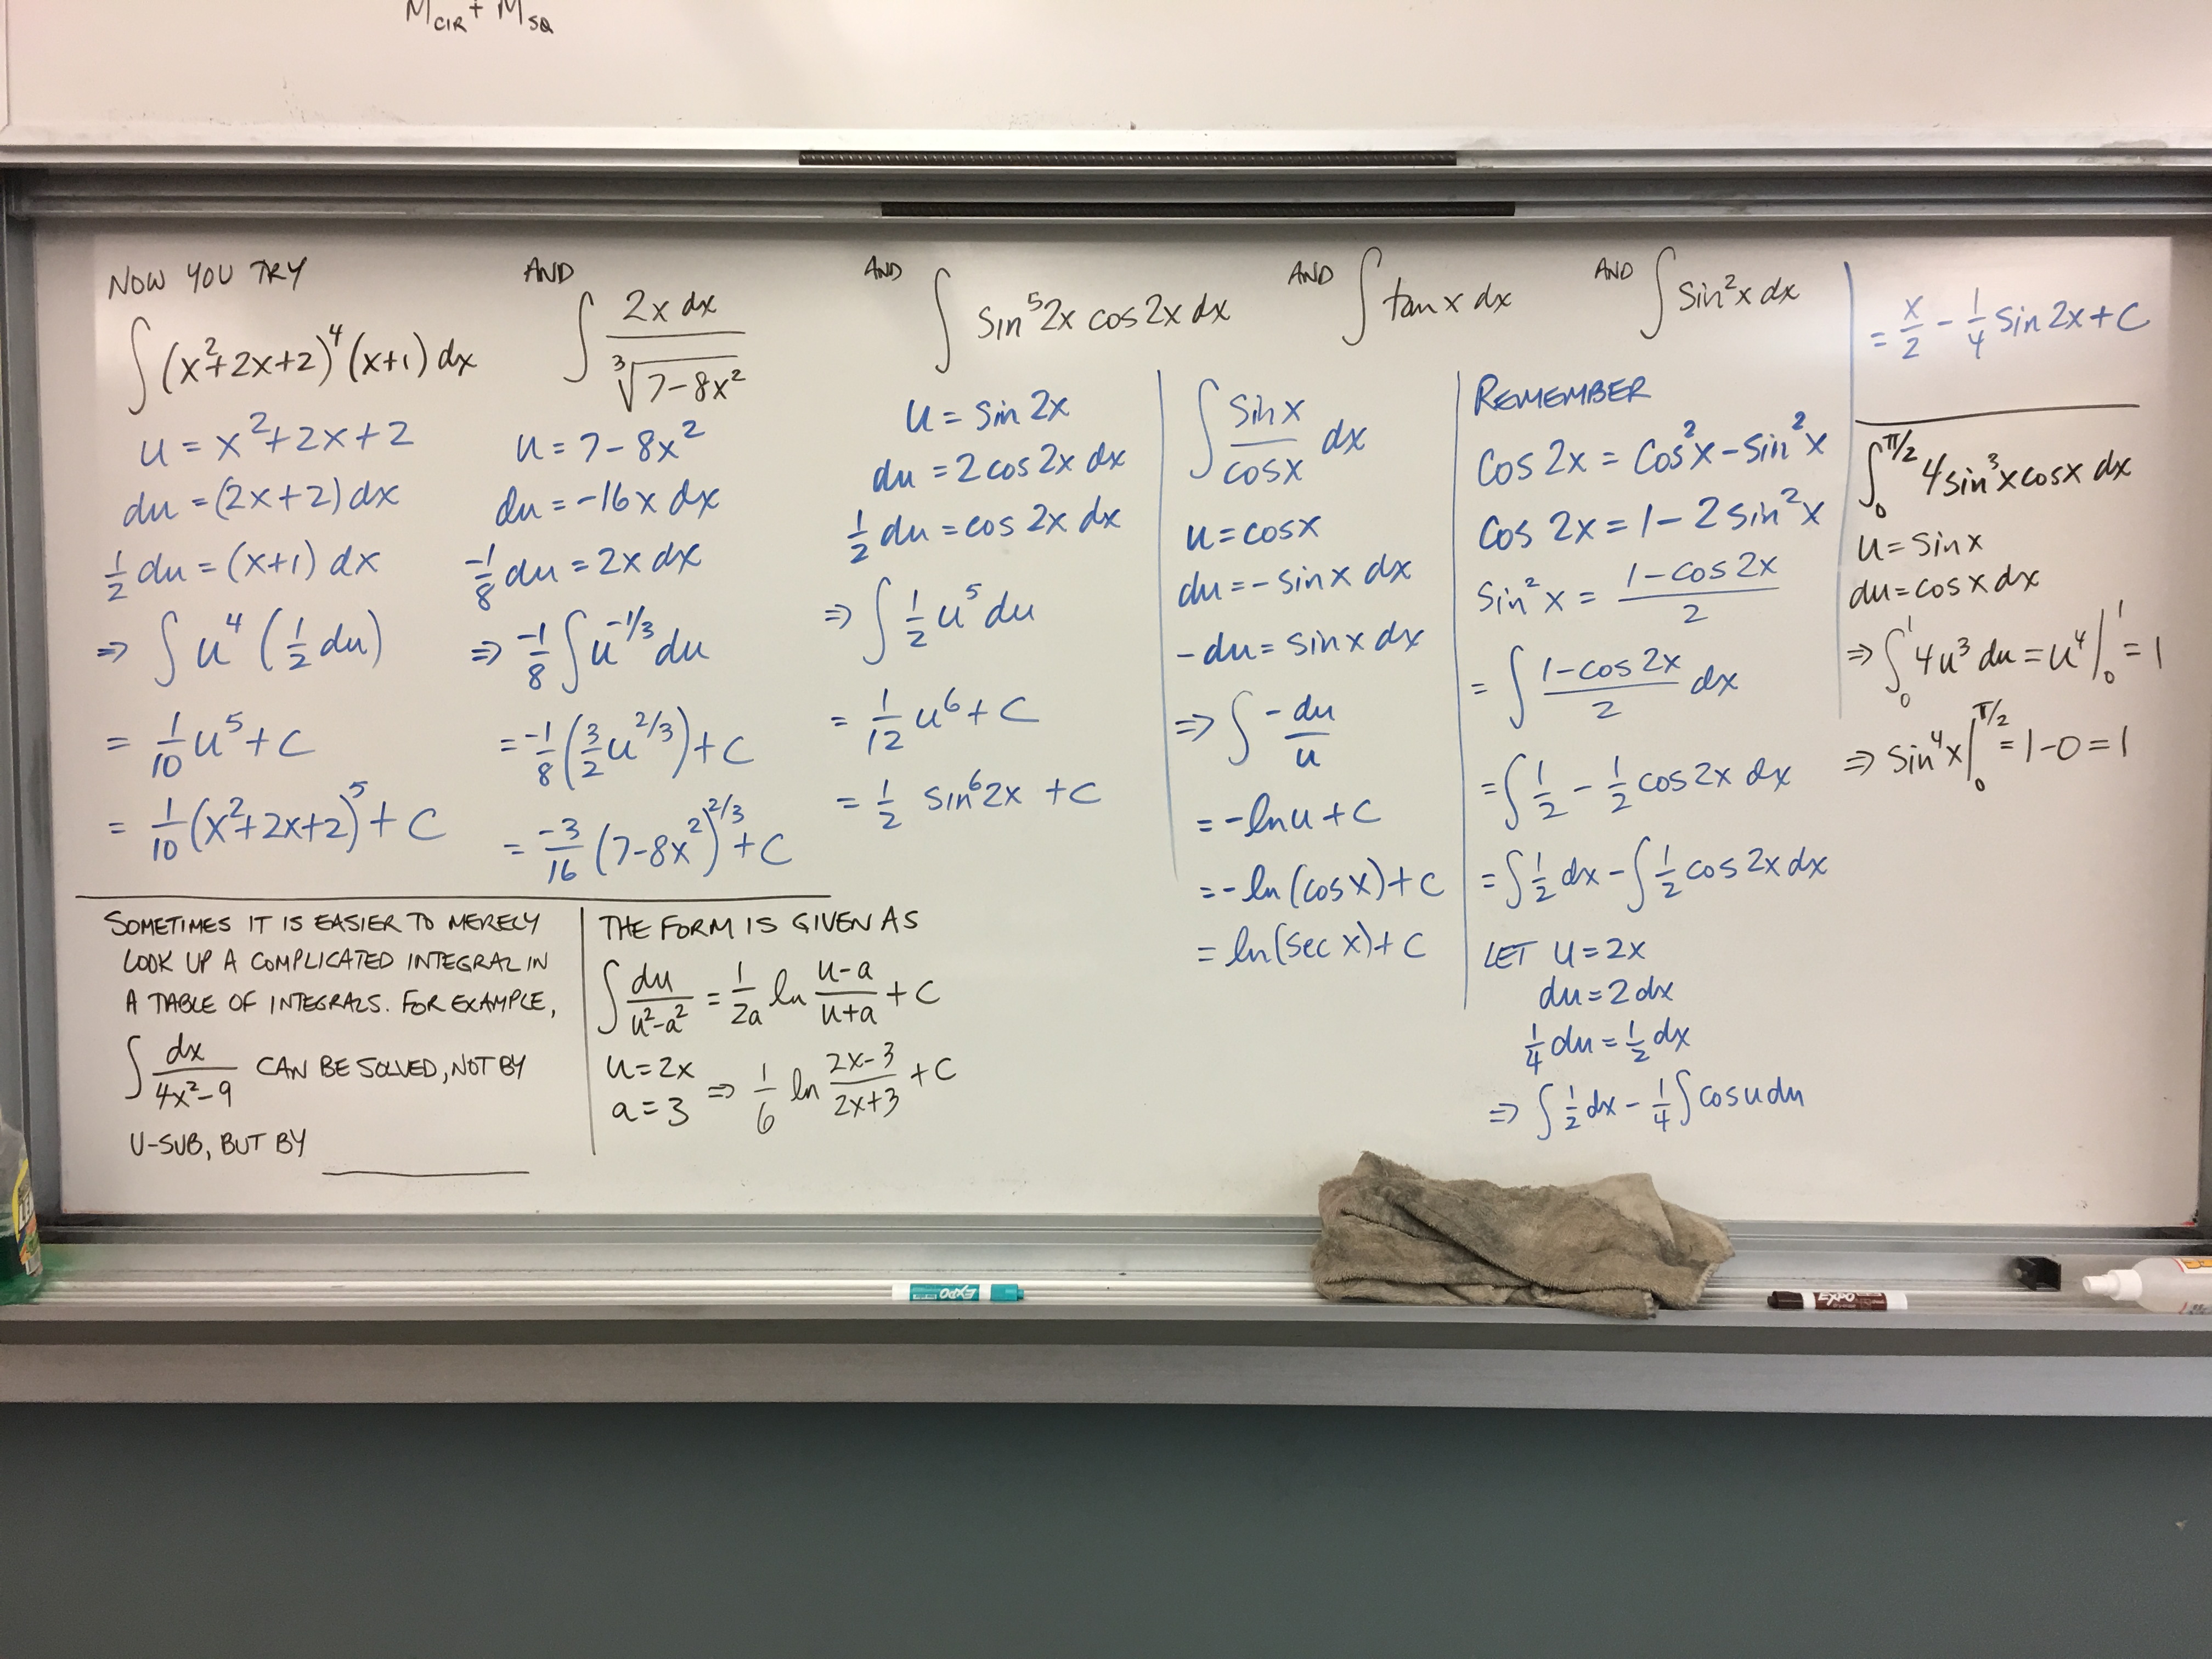 M_CIR + M_SQ
NOW YOU TRY
∫(x²+2x+2)⁴(x+1)dx
u = x²+2x+2
du = (2x+2)dx
1/2 du = (x+1) dx
⇒ ∫u⁴(1/2 du)
= 1/10 u⁵+C
= 1/10 (x²+2x+2)⁵+C
AND
∫ 2x dx / ∛(7-8x²)
u = 7-8x²
du = -16x dx
-1/8 du = 2x dx
⇒ -1/8 ∫u^(-1/3) du
= -1/8 (3/2 u^(2/3))+C
= -3/16 (7-8x²)^(2/3)+C
AND
∫ sin⁵2x cos2x dx
u = sin 2x
du = 2 cos 2x dx
1/2 du = cos 2x dx
⇒ ∫ 1/2 u⁵ du
= 1/12 u⁶+C
= 1/2 sin⁶2x +C
AND ∫tan x dx
∫ sin x / cos x dx
u = cos x
du = -sin x dx
-du = sin x dx
⇒ ∫ -du / u
= -ln u+C
= -ln(cos x)+C
= ln(sec x)+C
AND ∫sin²x dx
REMEMBER
Cos 2x = Cos²x-sin²x
Cos 2x = 1-2sin²x
sin²x = (1-cos 2x)/2
= ∫ (1-cos 2x)/2 dx
= ∫ 1/2 - 1/2 cos 2x dx
= ∫ 1/2 dx - ∫ 1/2 cos 2x dx
LET u = 2x
du = 2 dx
1/4 du = 1/2 dx
⇒ ∫ 1/2 dx - 1/4 ∫cos u du
= x/2 - 1/4 sin 2x+C
∫₀^(π/2) 4 sin³x cos x dx
u = sin x
du = cos x dx
⇒ ∫₀¹ 4u³ du = u⁴|₀¹ = 1
⇒ sin⁴x|₀^(π/2) = 1-0 = 1
SOMETIMES IT IS EASIER TO MERELY
LOOK UP A COMPLICATED INTEGRAL IN
A TABLE OF INTEGRALS. FOR EXAMPLE,
∫ dx / (4x²-9) CAN BE SOLVED, NOT BY
U-SUB, BUT BY ________
THE FORM IS GIVEN AS
∫ du / (u²-a²) = 1/2a ln (u-a)/(u+a) + C
u = 2x
a = 3 ⇒ 1/6 ln (2x-3)/(2x+3) + C
EXPO
EXPO